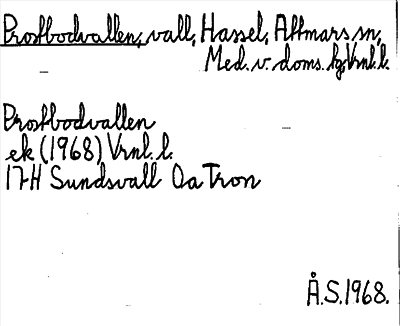 Prostbodvallen, vall, Hassel, Attmars sn,
Med. v. doms. hg, Vrnl. l.
Prostbodvallen
ek (1968) Vrnl. l.
17H Sundsvall 0a Tron
Å.S. 1968.